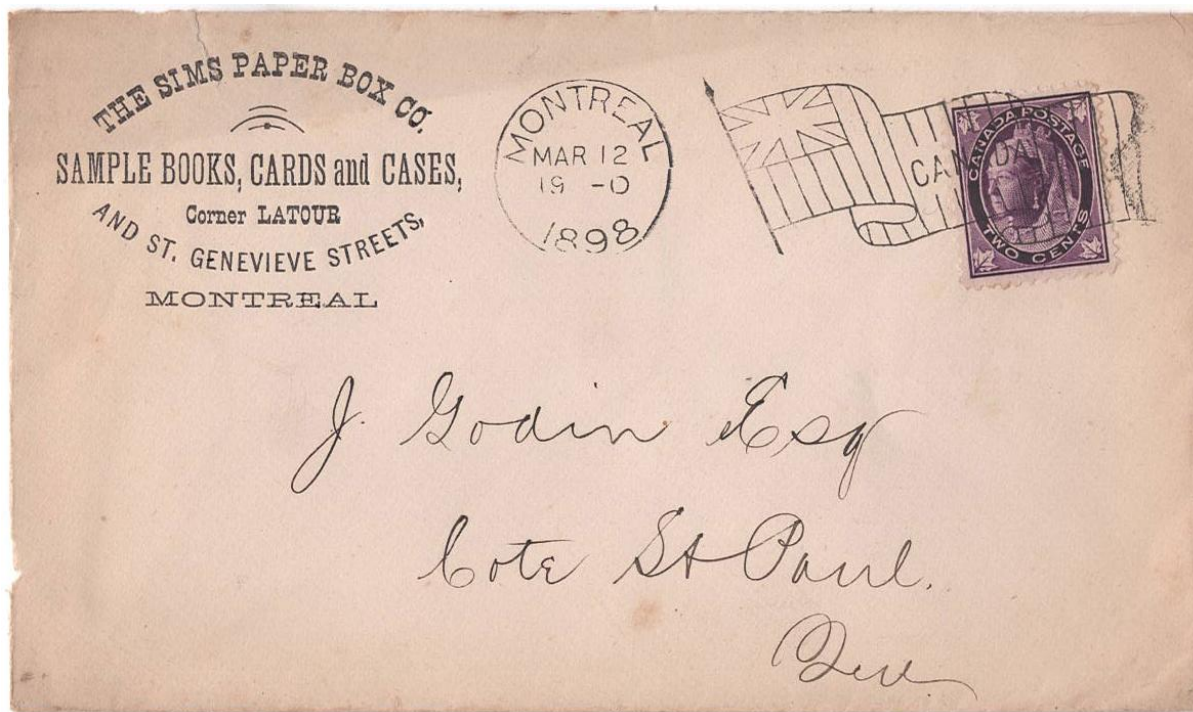 THE SIMS PAPER BOX CO.
SAMPLE BOOKS, CARDS and CASES,
Corner LATOUR
AND ST. GENEVIEVE STREETS,
MONTREAL
MONTREAL
MAR 12
19 -0
1898
CANADA
CANADA POSTAGE
TWO CENTS
J. Godin Esq
Cote St Paul.
Que.